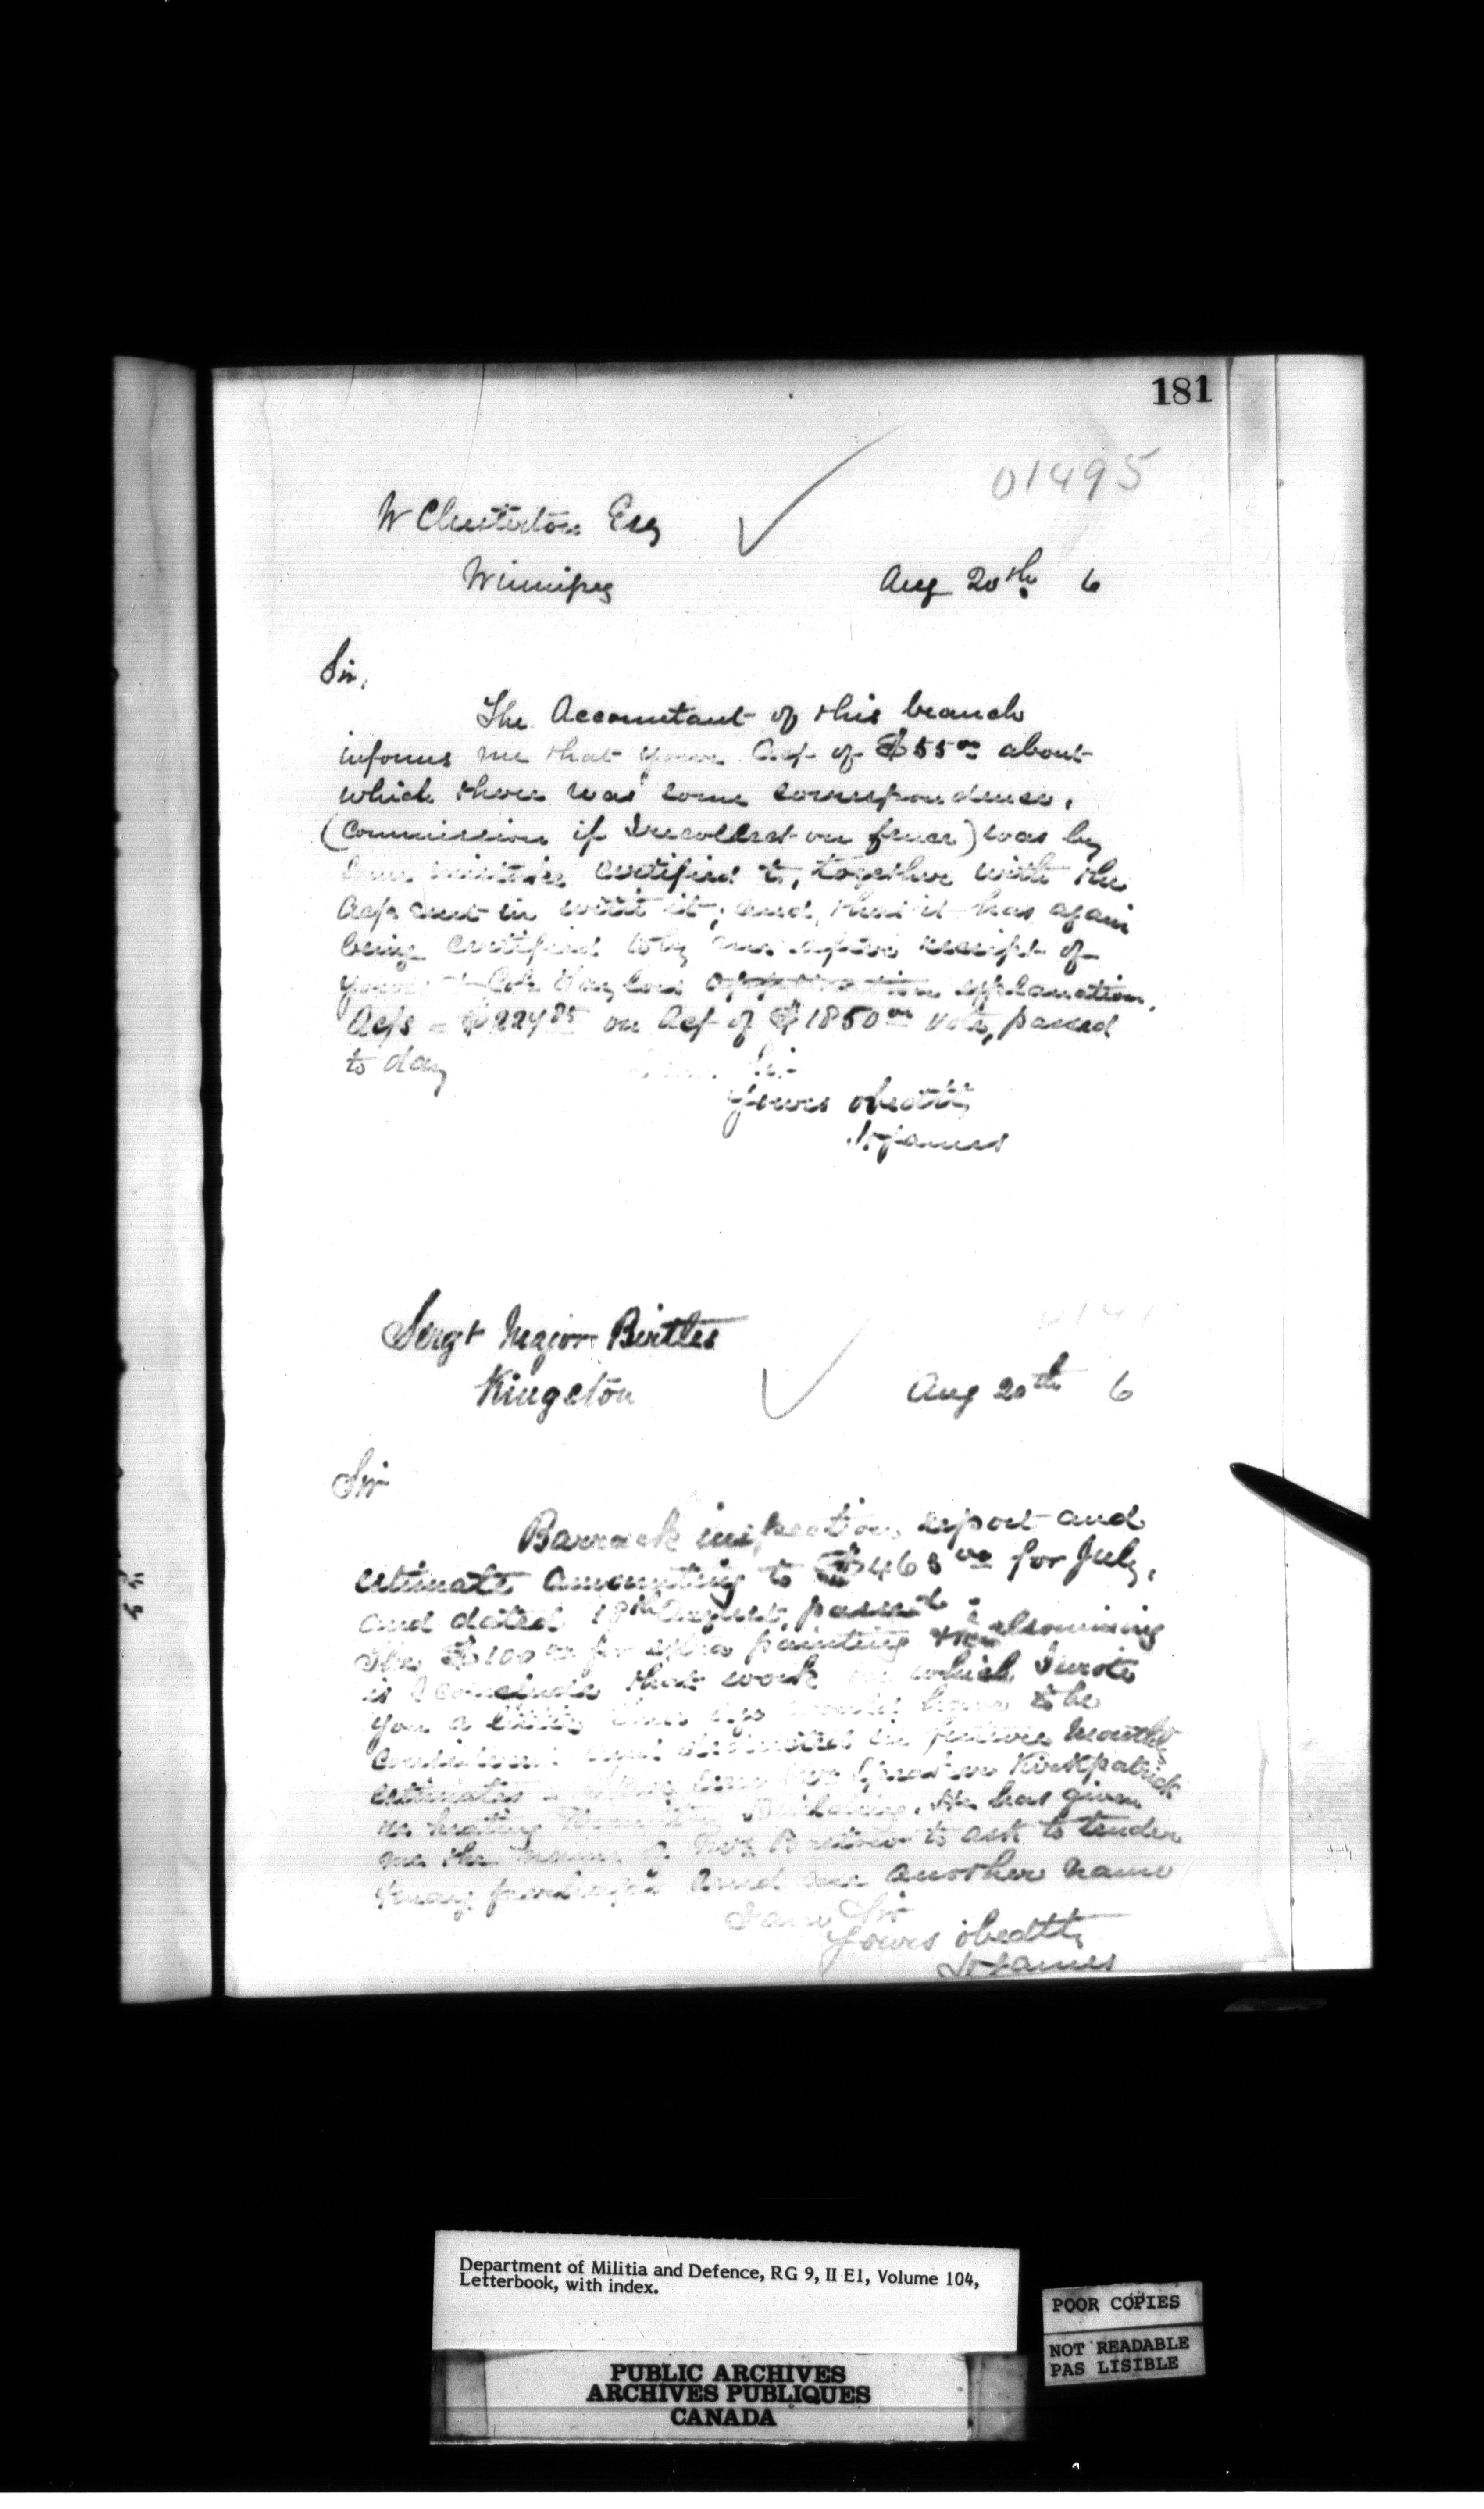 181
01495
W Chesterton Esq
Winnipeg
Aug 20th 6
Sir,
The Accountant of this branch
informs me that your Act of $55 00 about
which there was some correspondence,
(Commission if I recollect on fence) was by
some mistake certified to, together with the
Acts sent in with it, and that it has again
being certified to by me after receipt of
yours & Col Taylors explanation.
Acts = $224 85 on Act of $1850 00 Vote, passed
to day
Sir
Yours obedtly
H James
Sergt Major Birtles
Kingston
Aug 20th 6
Sir
Barrack inspection report and
estimate amounting to $463 00 for July,
and dated 18th August, passed.
The $100 00 for extra painting
is I conclude that work on which I wrote
you a little time ago would have to be
and in future months
estimates Kirkpatrick
re heating Buildings. He has given
me the name of to ask to tender
may perhaps send me another name
I am Sir
Yours obedtly
H James
Department of Militia and Defence, RG 9, II E1, Volume 104,
Letterbook, with index.
POOR COPIES
NOT READABLE
PAS LISIBLE
PUBLIC ARCHIVES
ARCHIVES PUBLIQUES
CANADA